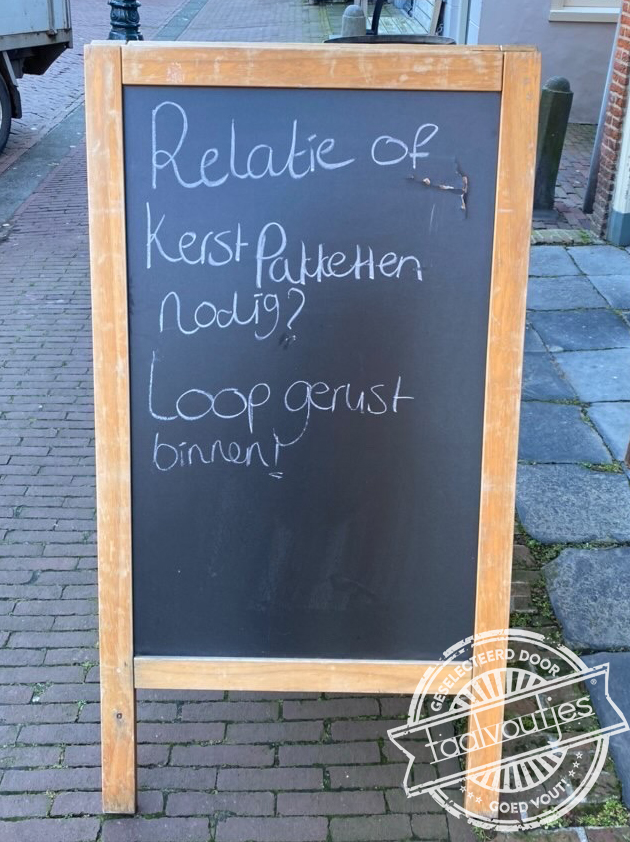 Relatie of
Kerst Pakketten
nodig?
Loop gerust
binnen!
GESELECTEERD DOOR
taalvoutjes
GOED VOUT!